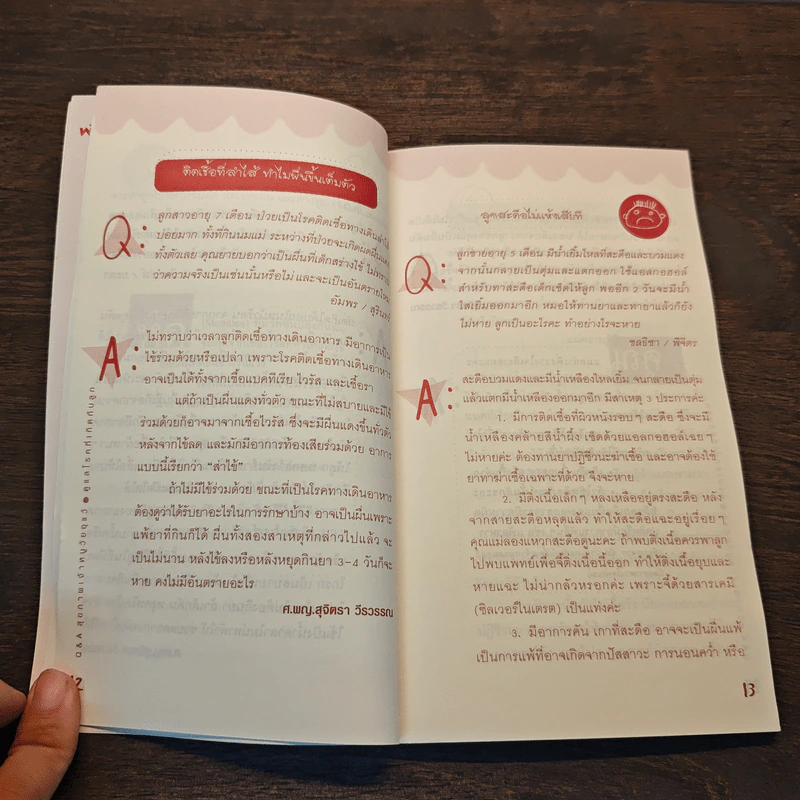 ติดเชื้อที่ลำไส้ ทำไมผื่นขึ้นเต็มตัว
Q:
ลูกสาวอายุ 7 เดือน ป่วยเป็นโรคติดเชื้อทางเดินลำไส้
บ่อยมาก ทั้งที่กินนมแม่ ระหว่างที่ป่วยจะเกิดผดผื่นแดง
ทั้งตัวเลย คุณยายบอกว่าเป็นผื่นที่เด็กสร้างไข้ ไม่ทราบ
ว่าความจริงเป็นเช่นนั้นหรือไม่ และจะเป็นอันตรายไหม
อัมพร / สุรินทร์
A:
ไม่ทราบว่าเวลาลูกติดเชื้อทางเดินอาหาร มีอาการเป็น
ไข้ร่วมด้วยหรือเปล่า เพราะโรคติดเชื้อทางเดินอาหาร
อาจเป็นได้ทั้งจากเชื้อแบคทีเรีย ไวรัส และเชื้อรา
แต่ถ้าเป็นผื่นแดงทั่วตัว ขณะที่ไม่สบายและมีไข้
ร่วมด้วยก็อาจมาจากเชื้อไวรัส ซึ่งจะมีผื่นแดงขึ้นทั่วตัว
หลังจากไข้ลด และมักมีอาการท้องเสียร่วมด้วย อาการ
แบบนี้เรียกว่า "ส่าไข้"
ถ้าไม่มีไข้ร่วมด้วย ขณะที่เป็นโรคทางเดินอาหาร
ต้องดูว่าได้รับยาอะไรในการรักษาบ้าง อาจเป็นผื่นเพราะ
แพ้ยาที่กินก็ได้ ผื่นทั้งสองสาเหตุที่กล่าวไปแล้ว จะ
เป็นไม่นาน หลังไข้ลงหรือหลังหยุดกินยา 3-4 วันก็จะ
หาย คงไม่มีอันตรายอะไร
ศ.พญ.สุจิตรา วีรวรรณ
Q & A สุขภาพเจ้าหนูวัยซุยวี ● ดูแลโรคที่เกิดกับลูก
12
ลูกสะดือไม่แห้งเสียที
Q:
ลูกชายอายุ 5 เดือน มีน้ำเยิ้มไหลที่สะดือและบวมแดง
จากนั้นกลายเป็นตุ่มและแตกออก ใช้แอลกอฮอล์
สำหรับทาสะดือเด็กเช็ดให้ลูก พออีก 2 วันจะมีน้ำ
ไสเยิ้มออกมาอีก หมอให้ทานยาและทายาแล้วก็ยัง
ไม่หาย ลูกเป็นอะไรคะ ทำอย่างไรจะหาย
ชลธิชา / พิจิตร
A:
สะดือบวมแดงและมีน้ำเหลืองไหลเยิ้ม จนกลายเป็นตุ่ม
แล้วแตกมีน้ำเหลืองออกมาอีก มีสาเหตุ 3 ประการค่ะ
1. มีการติดเชื้อที่ผิวหนังรอบๆ สะดือ ซึ่งจะมี
น้ำเหลืองคล้ายสีน้ำผึ้ง เช็ดด้วยแอลกอฮอล์เฉยๆ
ไม่หายค่ะ ต้องทานยาปฏิชีวนะฆ่าเชื้อ และอาจต้องใช้
ยาทาฆ่าเชื้อเฉพาะที่ด้วย จึงจะหาย
2. มีติ่งเนื้อเล็กๆ หลงเหลืออยู่ตรงสะดือ หลัง
จากสายสะดือหลุดแล้ว ทำให้สะดือแฉะอยู่เรื่อยๆ
คุณแม่ลองแหวกสะดือดูนะคะ ถ้าพบติ่งเนื้อควรพาลูก
ไปพบแพทย์เพื่อจี้ติ่งเนื้อนี้ออก ทำให้ติ่งเนื้อยุบและ
หายแฉะ ไม่น่ากลัวหรอกค่ะ เพราะจี้ด้วยสารเคมี
(ซิลเวอร์ไนเตรต) เป็นแท่งค่ะ
3. มีอาการคัน เกาที่สะดือ อาจจะเป็นผื่นแพ้
เป็นการแพ้ที่อาจเกิดจากปัสสาวะ การนอนคว่ำ หรือ
13